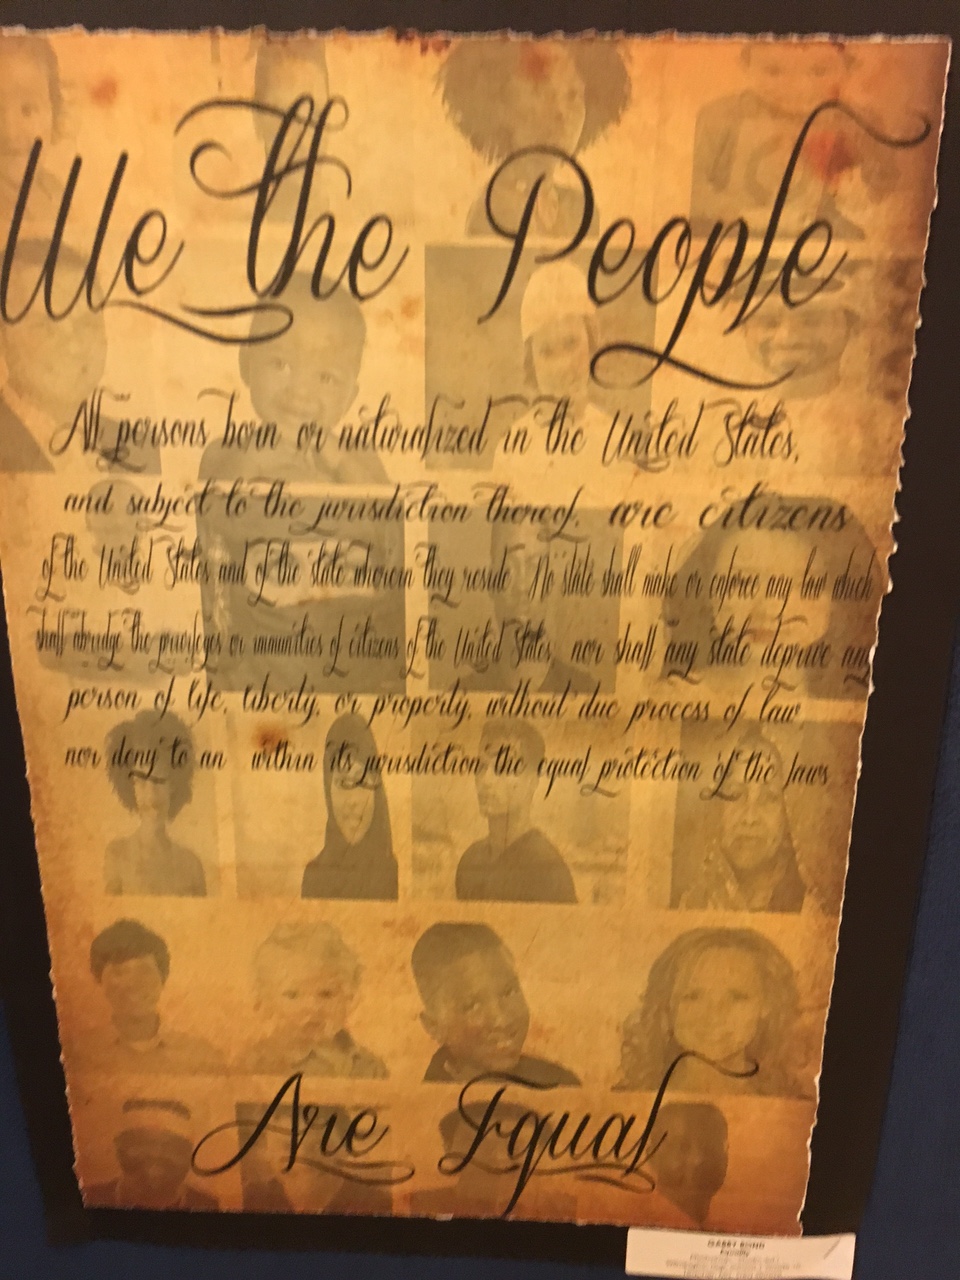 We the People
All persons born or naturalized in the United States,
and subject to the jurisdiction thereof, are citizens
of the United States and of the state wherein they reside No state shall make or enforce any law which
shall abridge the privileges or immunities of citizens of the United States, nor shall any state deprive any
person of life, liberty, or property, without due process of law,
nor deny to an within its jurisdiction the equal protection of the laws
Are Equal
GABBY BOND
Equality